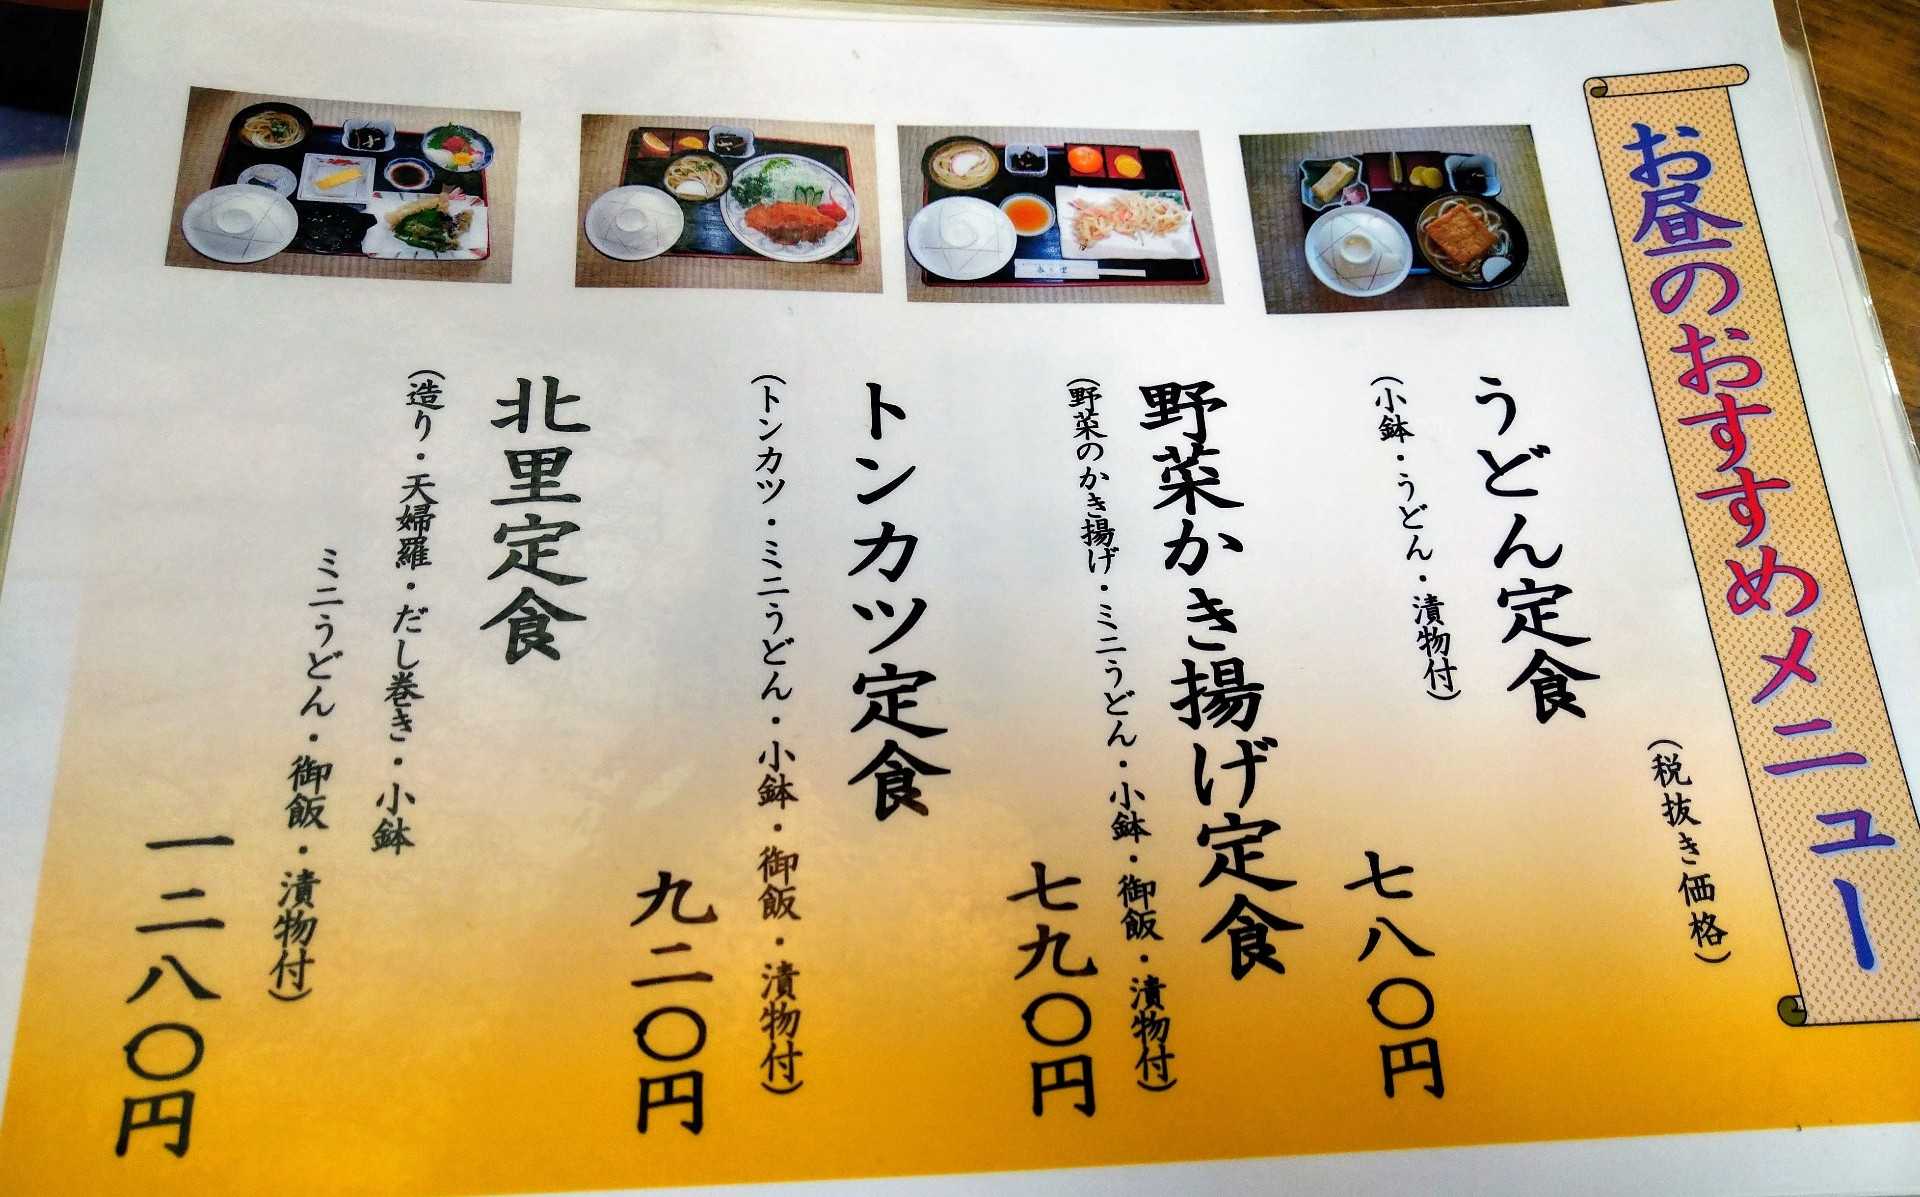 お昼のおすすめメニュー
（税抜き価格）
うどん定食
（小鉢・うどん・漬物付）
七八〇円
野菜かき揚げ定食
（野菜のかき揚げ・ミニうどん・小鉢・御飯・漬物付）
七九〇円
トンカツ定食
（トンカツ・ミニうどん・小鉢・御飯・漬物付）
九二〇円
北里定食
（造り・天婦羅・だし巻き・小鉢
ミニうどん・御飯・漬物付）
一二八〇円